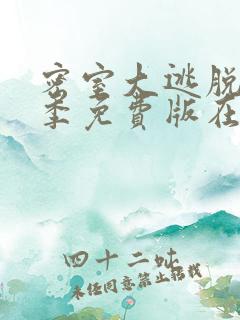 密室大逃脱
季免費版在
四十二
未经同意禁止转载